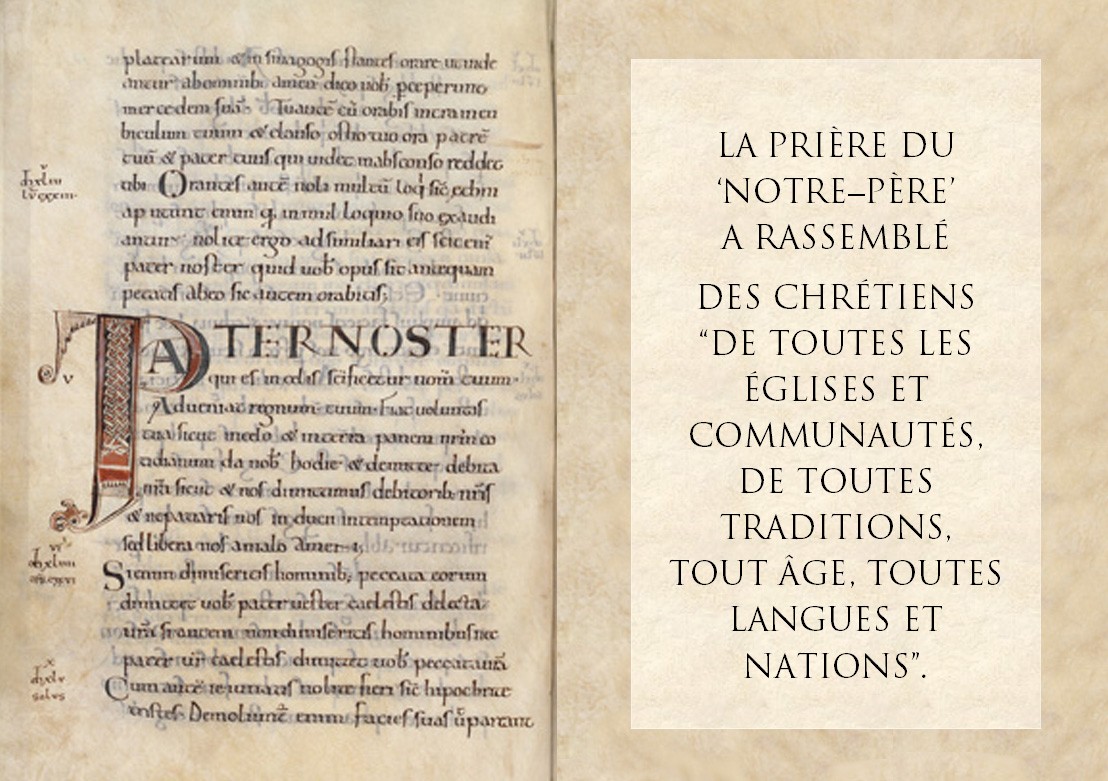 platearum & in sinagogis stantes orare ut uide
antur ab hominib; amen dico uob perceperunt
mercedem suā. Tu autē cū orabis intra in cu
biculum tuum & clauso ostio tuo ora patrē
tuū & pater tuus qui uidet in absconso reddet
tibi Orantes autē nolite multū loqui sic ethni
putant enim in multiloquio suo exaudi
antur nolite ergo adsimilari eis scit enī
pater noster quid uob opus sit antequam
petatis ab eo sic autem orabitis;
PATER NOSTER
qui es in celis scificetur nom tuum
Adueniat regnum tuum Fiat uoluntas
tua sicut in celo & in terra panem nrm co
tidianum da nob hodie & demitte debita
nra sicut & nos dimittimus debitorib; nris
& ne patiaris nos induci in temptationem
sed libera nos a malo Amen
Si enim dimiseritis hominib; peccata eorum
dimittet uob pater uester caelestis delicta
ura si autem non dimiseritis hominibus nec
pater ur caelestis dimittet uob peccata urā
Cum autē ieiunatis nolite fieri sic hipochrite
tristes Demoliunt enim facies suas ut pareant
LA PRIÈRE DU
‘NOTRE–PÈRE’
A RASSEMBLÉ
DES CHRÉTIENS
“DE TOUTES LES
ÉGLISES ET
COMMUNAUTÉS,
DE TOUTES
TRADITIONS,
TOUT ÂGE, TOUTES
LANGUES ET
NATIONS”.